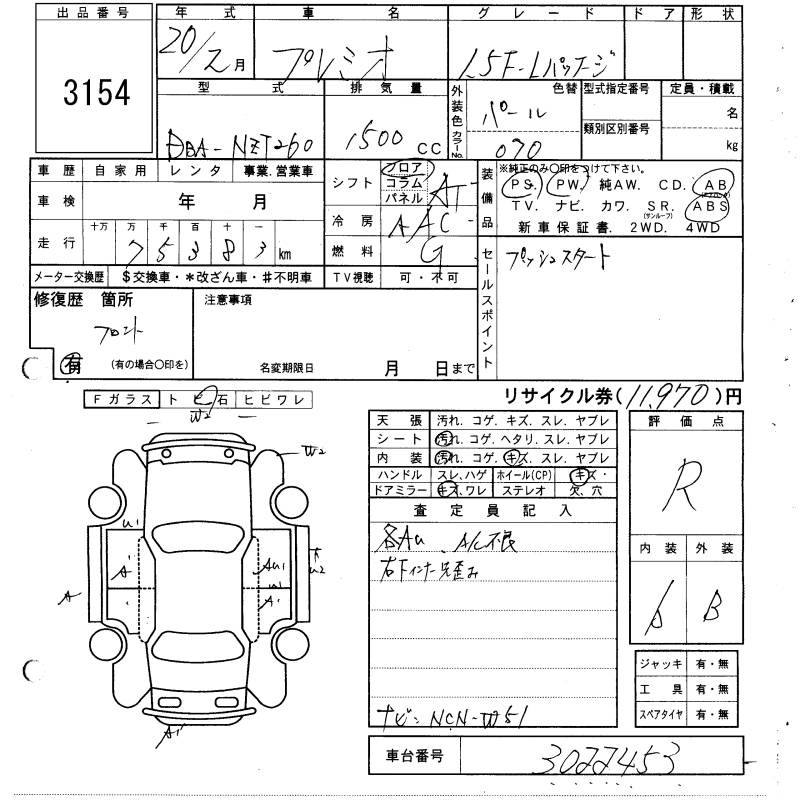 出品番号 年式 車名 グレード ドア 形状
3154 20/2月 プレミオ 1.5F-Lパッケージ
型式 排気量 外装色 色替 型式指定番号 定員・積載
DBA-NZT260 1500CC カラーNo. パール 070 類別区別番号 名 kg
車歴 自家用 レンタ 事業.営業車
車検 年 月
走行 十万 万 千 百 十 一
7 5 3 8 3 km
メーター交換歴 $交換車・*改ざん車・#不明車
シフト フロア コラム パネル AT
冷房 AAC
燃料 G
TV視聴 可・不可
装備品 ※純正のみ〇印をつけて下さい。
PS. PW. 純AW. CD. AB
TV. ナビ. カワ. SR. (サンルーフ) ABS
新車保証書. 2WD. 4WD
セールスポイント プッシュスタート
修復歴 箇所
フロント
有 (有の場合〇印を)
注意事項
名変期限日 月 日まで
リサイクル券(11,970)円
Fガラス トビ石 ヒビワレ
W2
W2
U1
A1
AU1
U1
A1
U2
A
A1
天張 汚れ. コゲ. キズ. スレ. ヤブレ
シート 汚れ. コゲ. ヘタリ. スレ. ヤブレ
内装 汚れ. コゲ. キズ. スレ. ヤブレ
ハンドル スレ.ハゲ ホイール(CP) キズ・
ドアミラー キズ.ワレ ステレオ 欠.穴
査定員記入
各AU A/C不良
右Fインナー先歪み
ナビ: NCN-W51
評価点
R
内装 外装
B
ジャッキ 有・無
工具 有・無
スペアタイヤ 有・無
車台番号 3022453